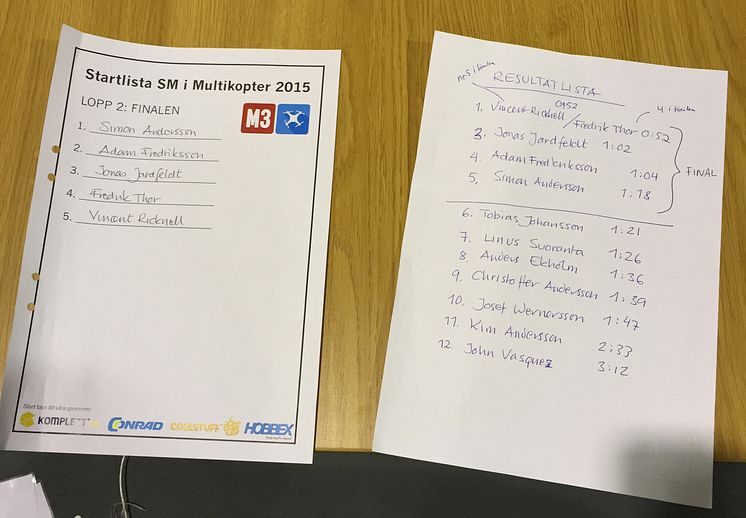 Startlista SM i Multikopter 2015
LOPP 2: FINALEN
M3
1. Simon Andersson
2. Adam Fredriksson
3. Jonas Jardfeldt
4. Fredrik Thor
5. Vincent Ricknell
Stort tack till våra sponsorer:
KOMPLETT
CONRAD
COOLSTUFF
HOBBEX
nr 5 i finalen
RESULTATLISTA
0:52
4 i finalen
1. Vincent Ricknell / Fredrik Thor 0:52
3. Jonas Jardfeldt 1:02
4. Adam Fredriksson 1:04
5. Simon Andersson 1:18
FINAL
6. Tobias Johansson 1:21
7. Linus Suoranta 1:26
8 Anders Ekholm 1:36
9. Christoffer Andersson 1:39
10. Josef Wernersson 1:47
11. Kim Andersson 2:33
12. John Vasquez 3:12